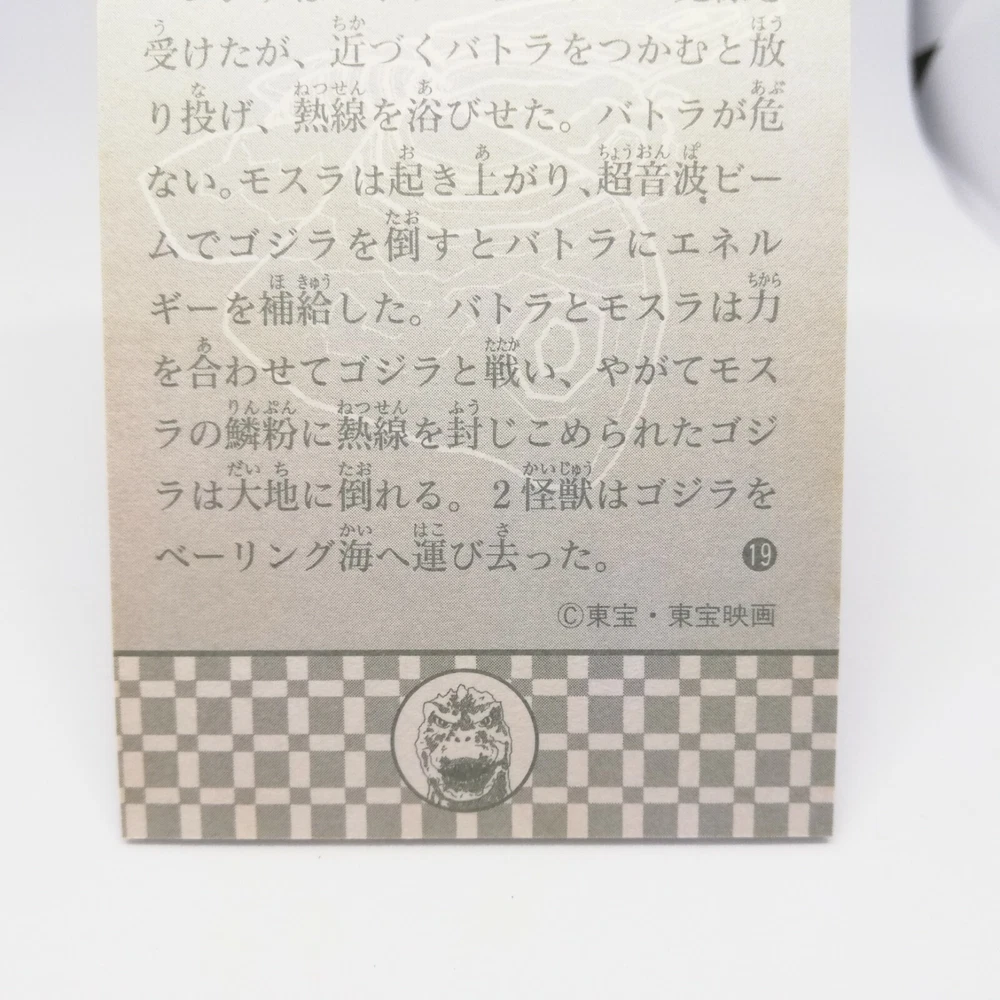 受けたが、近づくバトラをつかむと放
り投げ、熱線を浴びせた。バトラが危
ない。モスラは起き上がり、超音波ビー
ムでゴジラを倒すとバトラにエネル
ギーを補給した。バトラとモスラは力
を合わせてゴジラと戦い、やがてモス
ラの鱗粉に熱線を封じこめられたゴジ
ラは大地に倒れる。2怪獣はゴジラを
ベーリング海へ運び去った。 19
©東宝・東宝映画